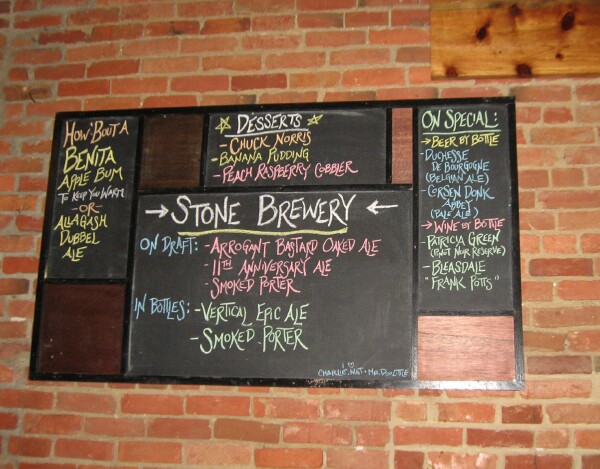 HOW 'BOUT A
BENITA
APPLE BUM
TO KEEP YOU WARM
-OR-
ALLAGASH
DUBBEL
ALE
DESSERTS
- CHUCK NORRIS
- BANANA PUDDING
- PEACH RASPBERRY COBBLER
→ STONE BREWERY ←
ON DRAFT: - ARROGANT BASTARD OAKED ALE
- 11TH ANNIVERSARY ALE
- SMOKED PORTER
IN BOTTLES: - VERTICAL EPIC ALE
- SMOKED PORTER
ON SPECIAL:
→ BEER BY BOTTLE
DUCHESSE
DE BOURGOIGNE
(BELGIAN ALE)
- CORSEN DONK
ABBEY
(PALE ALE)
→ WINE BY BOTTLE
PATRICIA GREEN
(PINOT NOIR RESERVE)
- BLEASDALE
"FRANK POTTS"